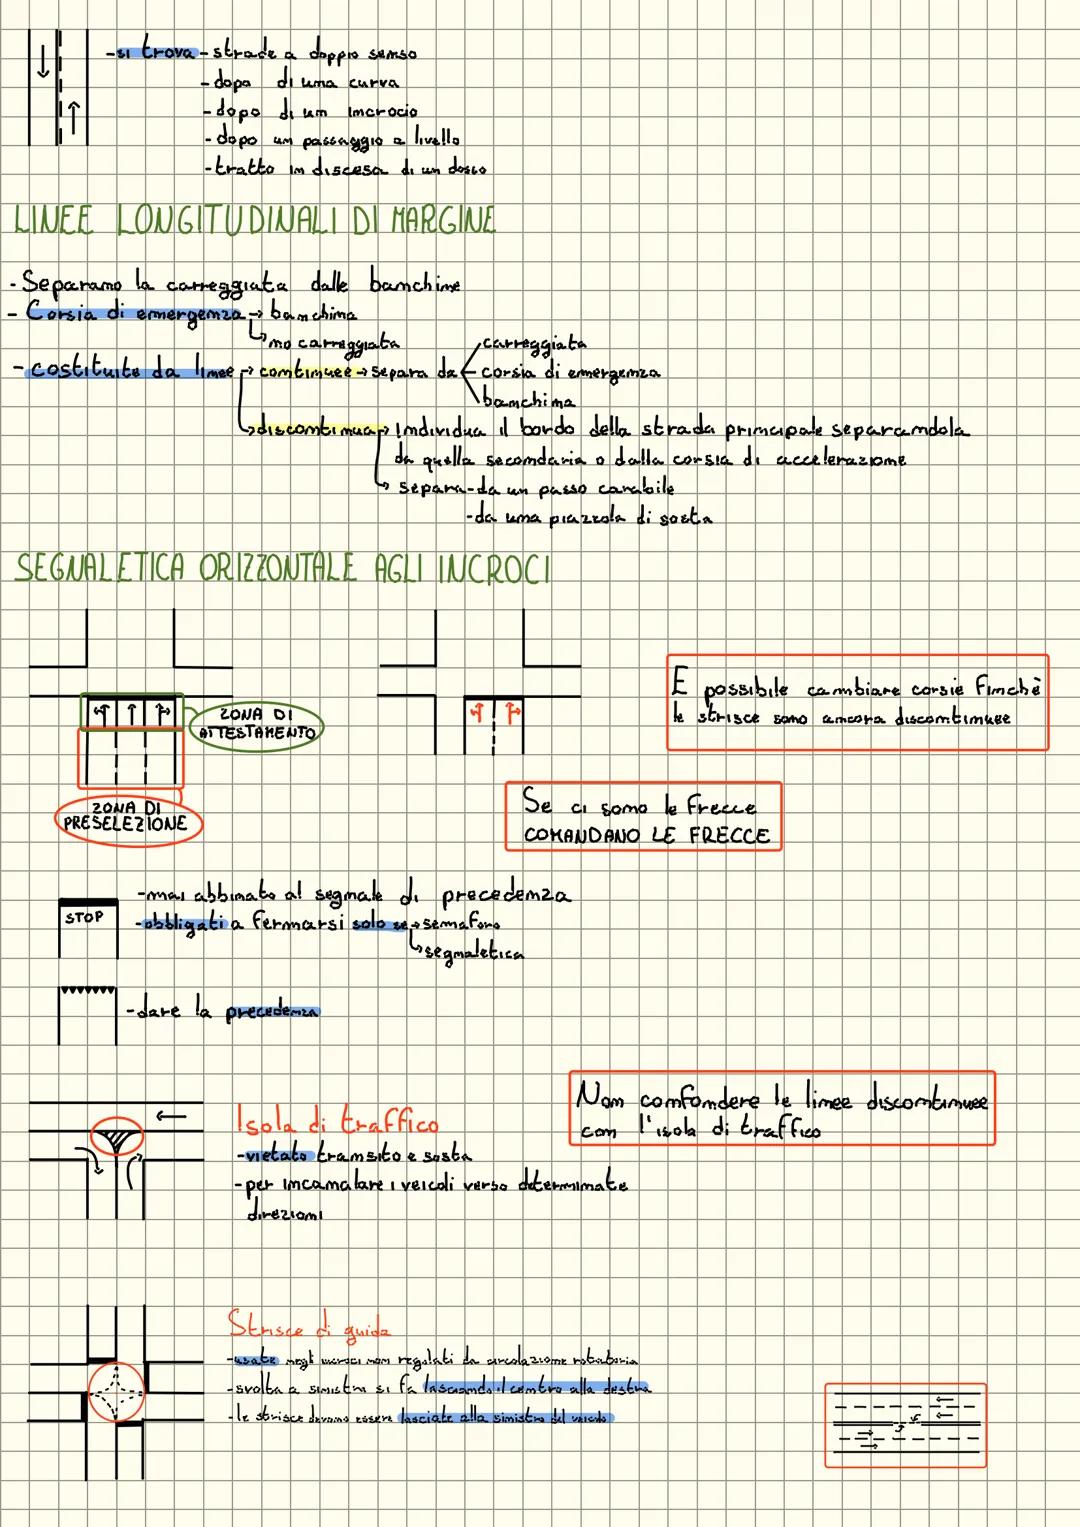 -si trova - strade a doppio senso
- dopo di una curva
- dopo di un incrocio
- dopo un passaggio a livello
- tratto in discesa di un dosso
LINEE LONGITUDINALI DI MARGINE
- Separano la carreggiata dalle banchine
- Corsia di emergenza → banchina
↳ no carreggiata
- costituite da linee → continuee → separa da carreggiata
corsia di emergenza
banchina
↳ discontinua → individua il bordo della strada principale separandola
da quella secondaria o dalla corsia di accelerazione
↳ separa - da un passo carabile
- da una piazzola di sosta
SEGNALETICA ORIZZONTALE AGLI INCROCI
ZONA DI
ATTESTAMENTO
ZONA DI
PRESELEZIONE
E possibile cambiare corsie Finchè
le strisce sono ancora discontinuee
Se ci sono le Frecce
COMANDANO LE FRECCE
STOP
- mai abbinato al segnale di precedenza
- obbligati a fermarsi solo se → semaforo
↳ segnaletica
- dare la precedenza
Isola di traffico
- vietato transito e sosta
- per incanalare i veicoli verso determinate
direzioni
Non confondere le linee discontinuee
con l'isola di traffico
Strisce di guida
- usate negli incroci non regolati da circolazione rotatoria
- svolta a sinistra si fa lasciando il centro alla destra
- le strisce devono essere lasciate alla sinistra del veicolo